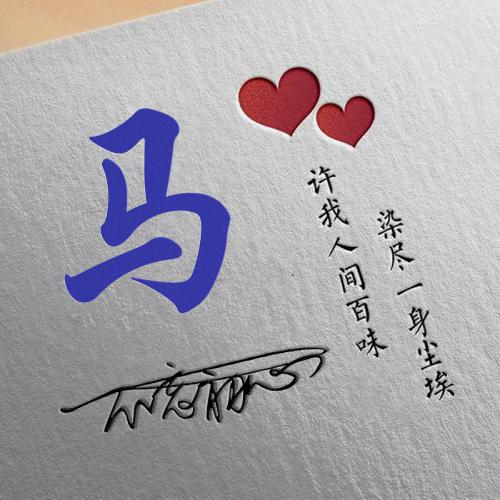 马
许我人间百味
染尽一身尘埃